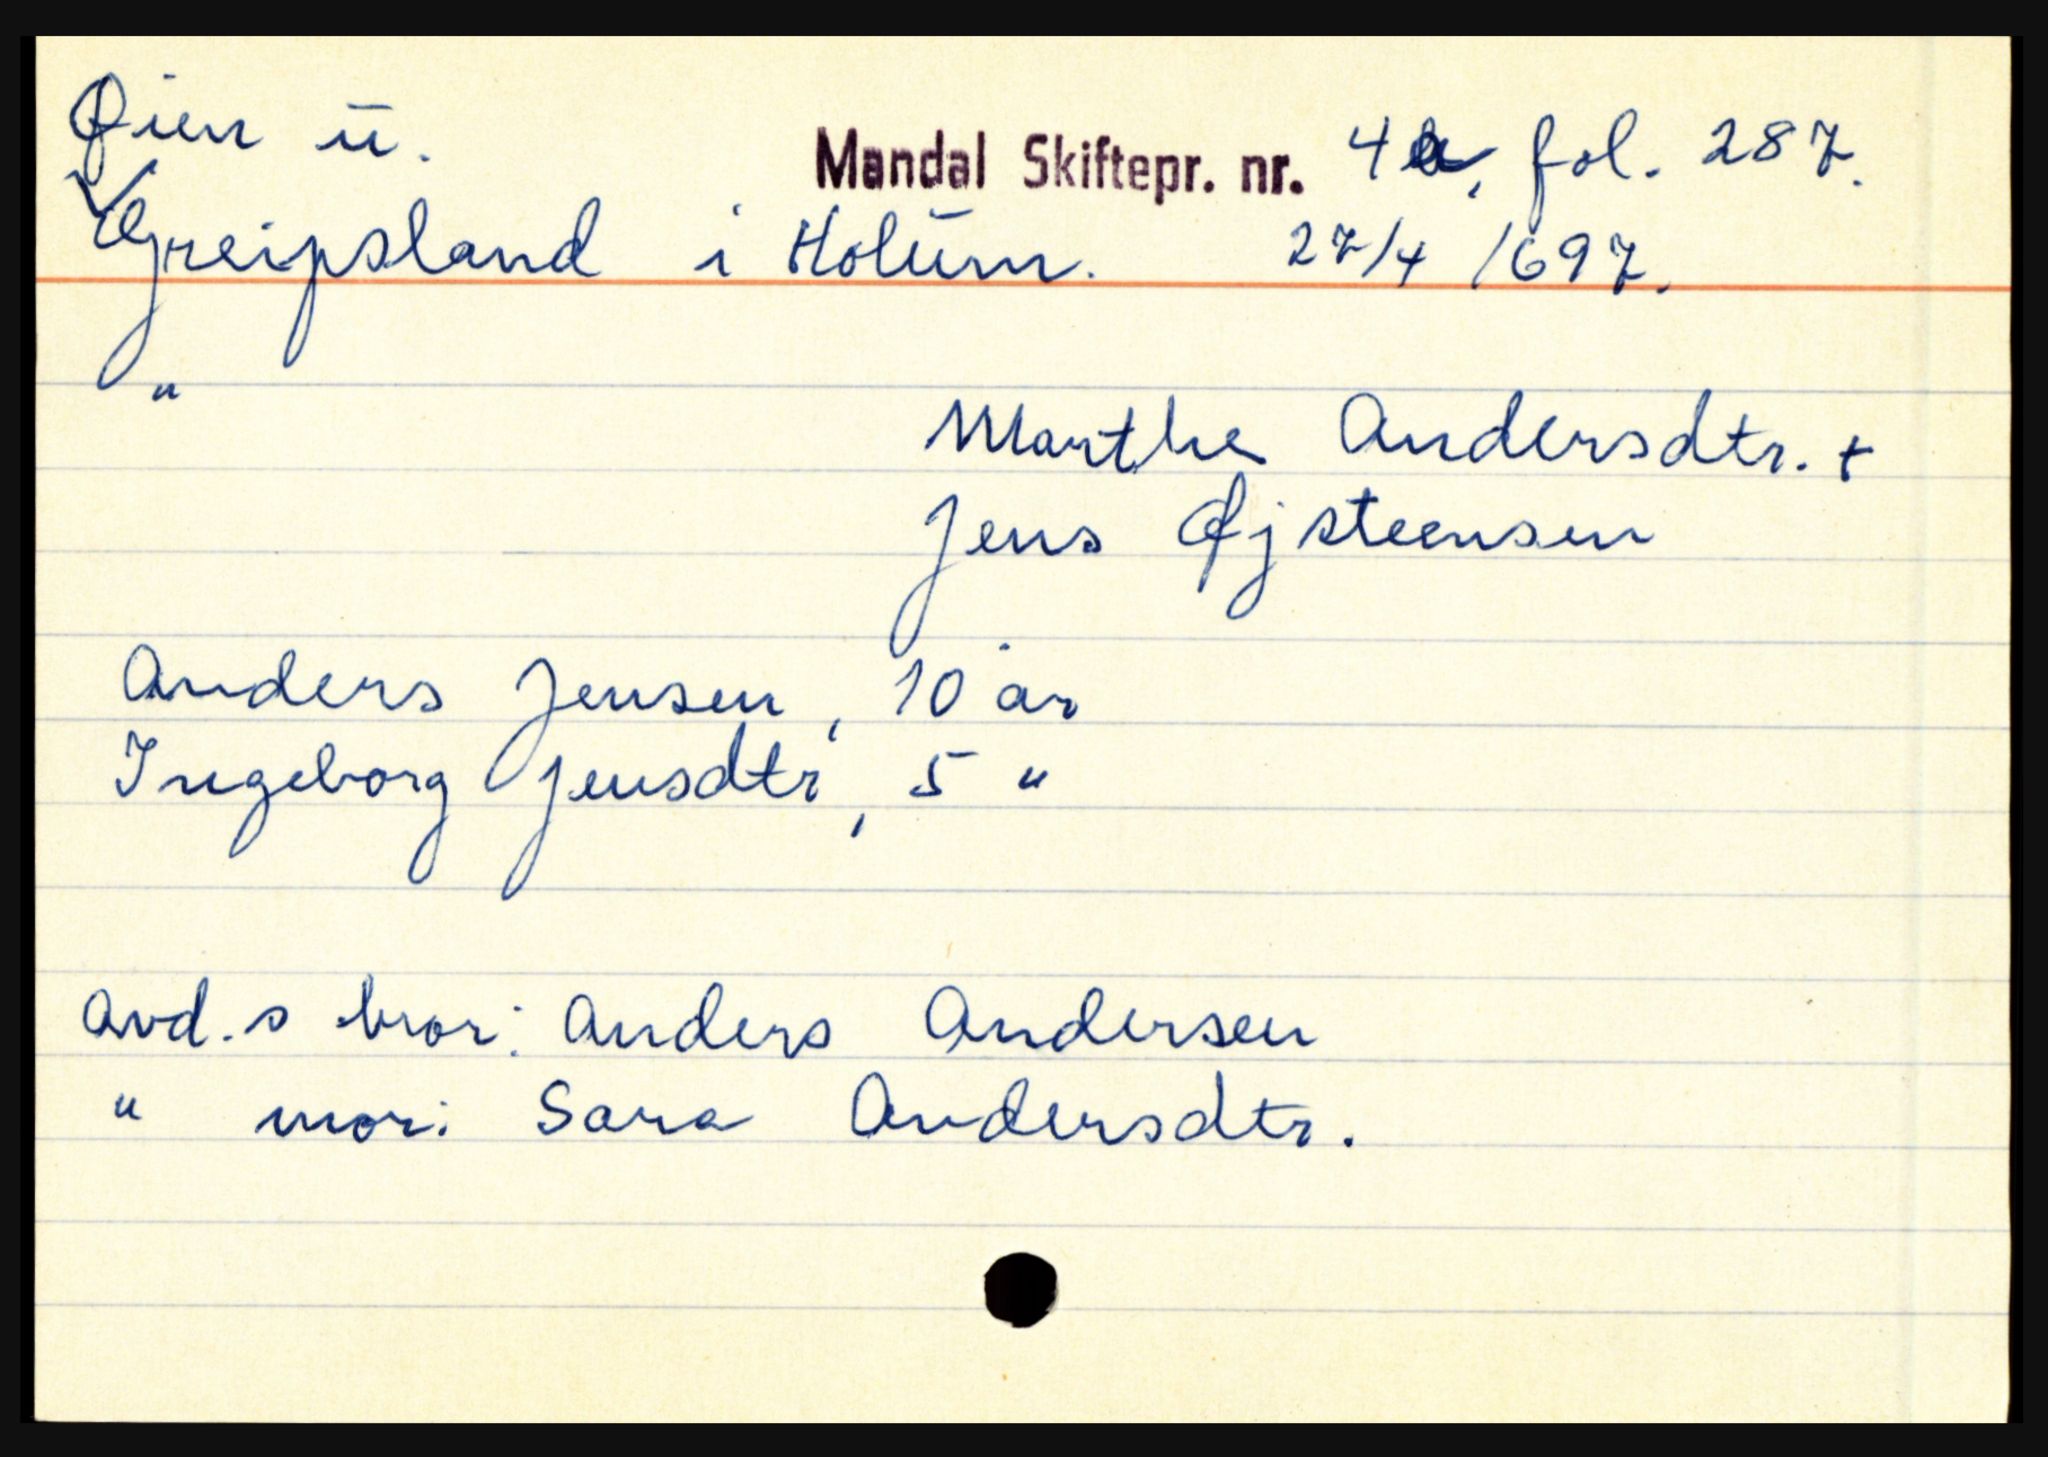 Øien u.
Mandal Skiftepr. nr. 4a, fol. 287.
Greipsland i Holum. 27/4 1697.
"
Marthe Andersdtr. +
Jens Øjsteensen
Anders Jensen, 10 år
Ingeborg Jensdtr, 5 "
Avd. s bror: Anders Andersen
" mor: Sara Andersdtr.